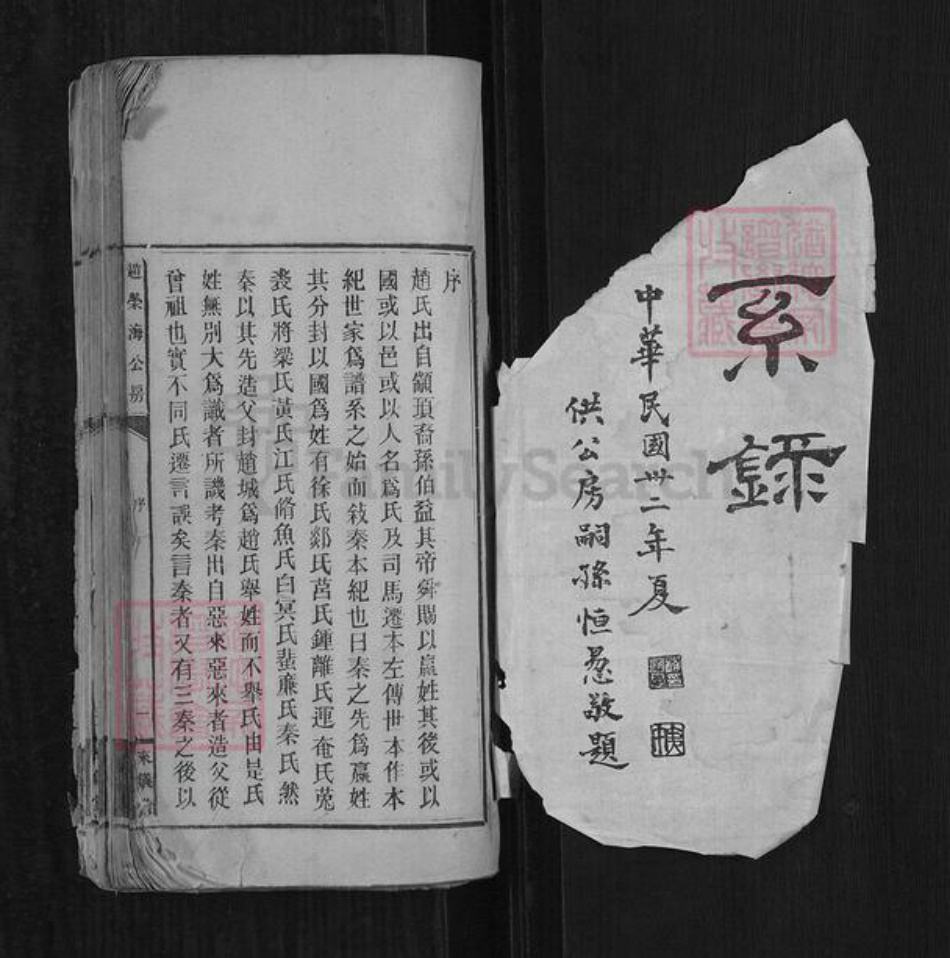 系錄
中華民國卅二年夏
供公房嗣孫恒惖敬題
序
趙氏出自顓頊裔孫伯益其帝舜賜以嬴姓其後或以
國或以邑或以人名爲氏及司馬遷本左傳世本作本
紀世家爲譜系之始而敍秦本紀也曰秦之先爲嬴姓
其分封以國爲姓有徐氏郯氏莒氏鍾離氏運奄氏菟
裘氏將梁氏黃氏江氏脩魚氏白冥氏蜚廉氏秦氏然
秦以其先造父封趙城爲趙氏舉姓而不舉氏由是氏
姓無別大爲識者所譏考秦出自惡來惡來者造父從
曾祖也實不同氏遷言誤矣言秦者又有三秦之後以
趙榮海公房
序
一
FamilySearch